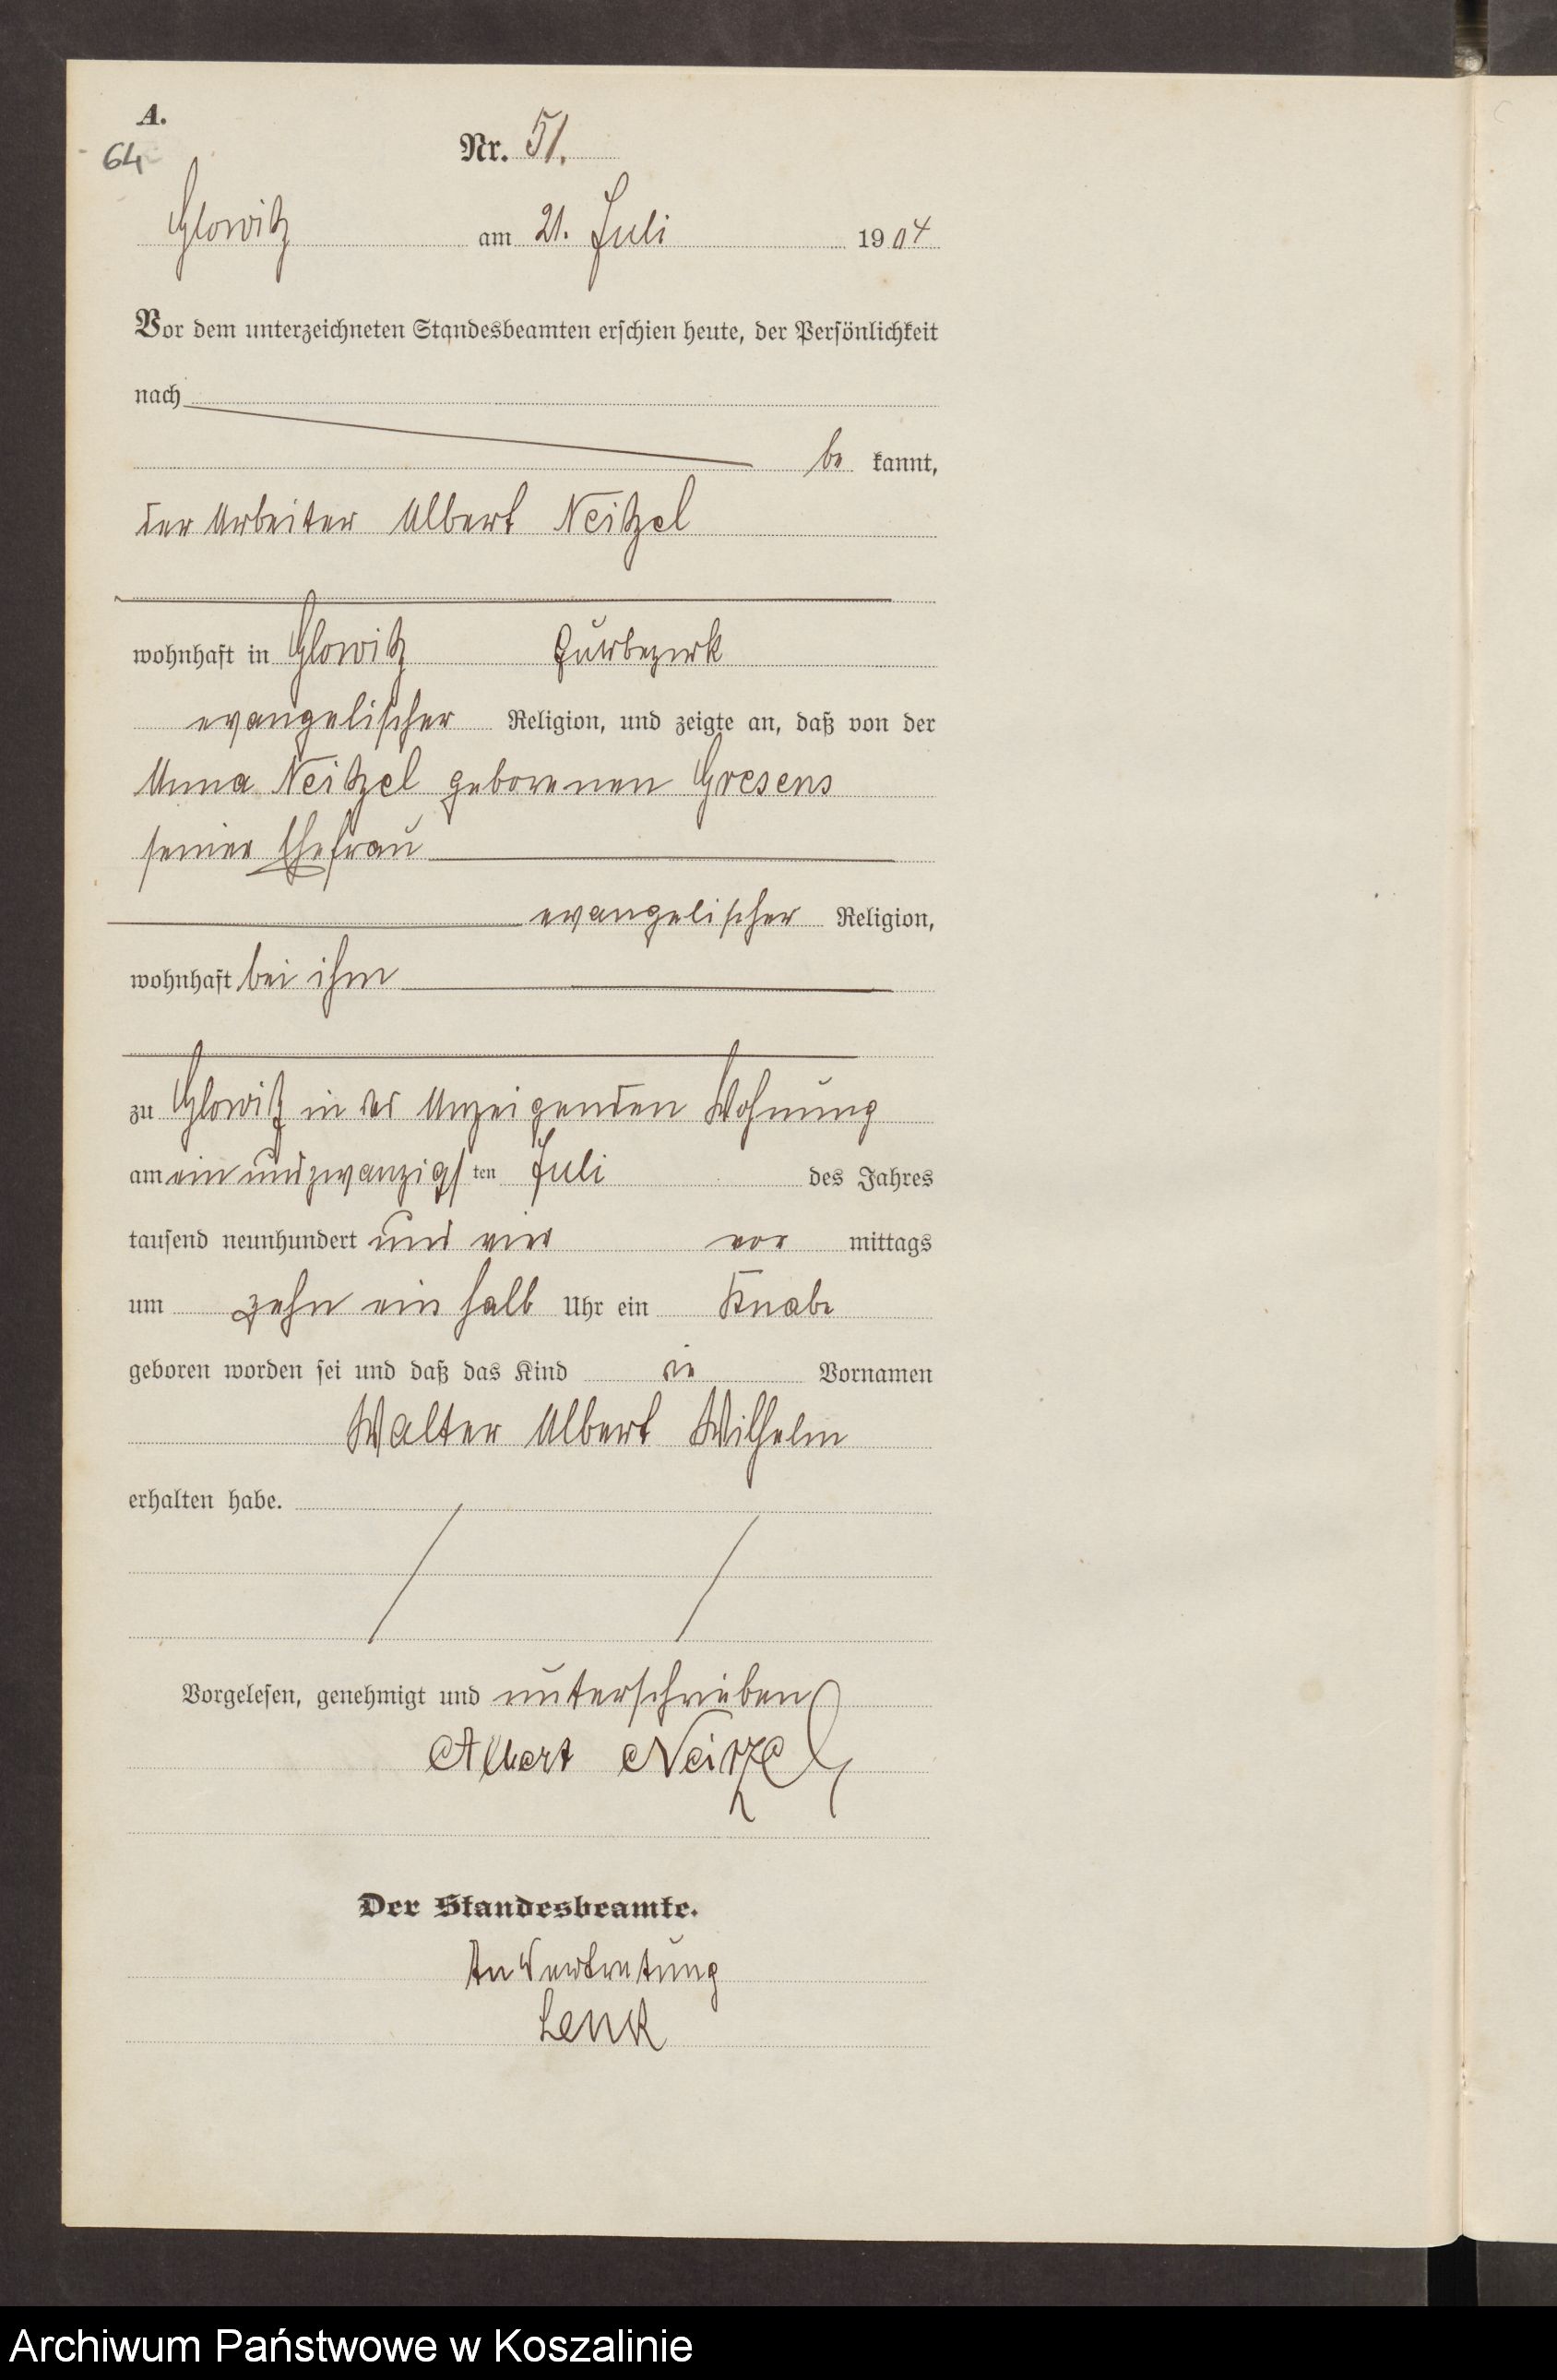 A.
64
Nr. 51.
Glowitz am 21. Juli 1904
Vor dem unterzeichneten Standesbeamten erschien heute, der Persönlichkeit
nach
be kannt,
der Arbeiter Albert Neitzel
wohnhaft in Glowitz Gutsbezirk
evangelischer Religion, und zeigte an, daß von der
Anna Neitzel geborenen Gresens
seiner Ehefrau
evangelischer Religion,
wohnhaft bei ihm
zu Glowitz in des Anzeigenden Wohnung
am ein und zwanzigsten Juli des Jahres
tausend neunhundert und vier vor mittags
um zehn ein halb Uhr ein Knabe
geboren worden sei und daß das Kind die Vornamen
Walter Albert Wilhelm
erhalten habe.
Vorgelesen, genehmigt und unterschrieben
Albert Neitzel
Der Standesbeamte.
In Vertretung
Lenk
Archiwum Państwowe w Koszalinie